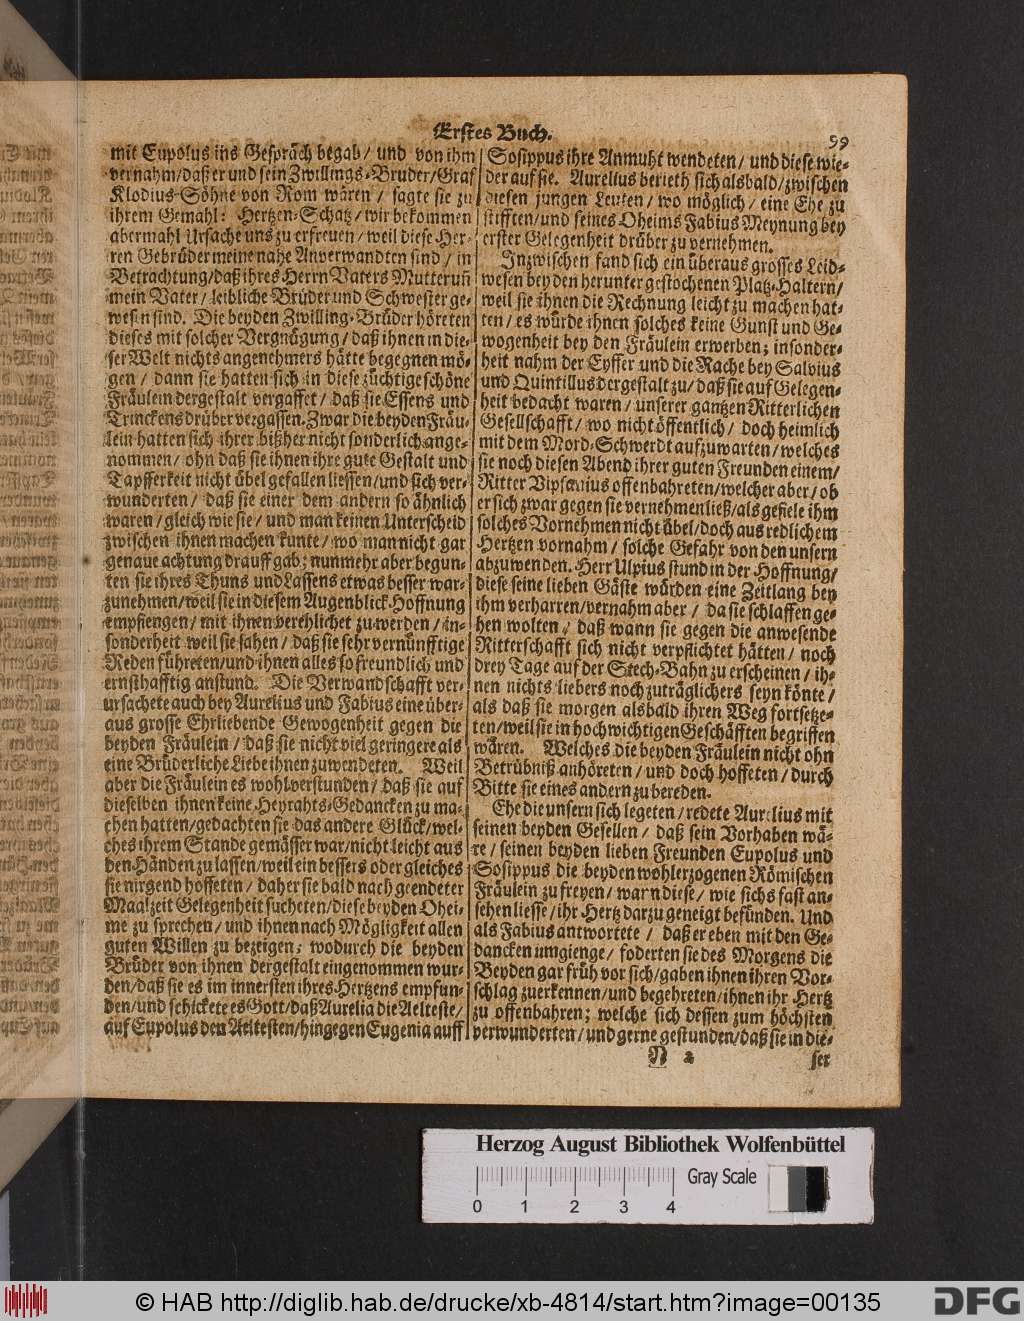 Erstes Buch.
59
mit Eupolus ins Gespräch begab / und von ihm
vernahm/daß er und sein Zwillings-Bruder/Graf
Klodius-Söhne von Rom wären / sagte sie zu
ihrem Gemahl: Hertzen-Schatz / wir bekommen
abermahl Ursache uns zu erfreuen / weil diese Her-
ren Gebrüder meine nahe Anverwandten sind / in
Betrachtung/daß ihres Herrn Vaters Mutter uñ
mein Vater / leibliche Brüder und Schwester ge-
wesen sind. Die beyden Zwilling-Brüder höreten
dieses mit solcher Vergnügung / daß ihnen in die-
ser Welt nichts angenehmers hätte begegnen mö-
gen / dann sie hatten sich in diese züchtige schöne
Fräulein dergestalt vergaffet / daß sie Essens und
Trinckens drüber vergassen. Zwar die beyden Fräu-
lein hatten sich ihrer bißher nicht sonderlich ange-
nommen / ohn daß sie ihnen ihre gute Gestalt und
Tapfferkeit nicht übel gefallen liessen/und sich ver-
wunderten / daß sie einer dem andern so ähnlich
waren / gleich wie sie / und man keinen Unterscheid
zwischen ihnen machen kunte / wo man nicht gar
genaue achtung drauff gab; nunmehr aber begun-
ten sie ihres Thuns und Lassens etwas besser war-
zunehmen/weil sie in diesem Augenblick Hoffnung
empfiengen / mit ihnen verehlichet zu werden / in-
sonderheit weil sie sahen / daß sie sehr vernünfftige
Reden führeten/und ihnen alles so freundlich und
ernsthafftig anstund. Die Verwandschafft ver-
ursachete auch bey Aurelius und Fabius eine über-
aus grosse Ehrliebende Gewogenheit gegen die
beyden Fräulein / daß sie nicht viel geringere als
eine Brüderliche Liebe ihnen zuwendeten. Weil
aber die Fräulein es wohl verstunden / daß sie auf
dieselben ihnen keine Heyrahts-Gedancken zu ma-
chen hatten/gedachten sie das andere Glück/wel-
ches ihrem Stande gemässer war/nicht leicht aus
den Händen zu lassen/weil ein bessers oder gleiches
sie nirgend hoffeten / daher sie bald nach geendeter
Maalzeit Gelegenheit sucheten/diese beyden Ohei-
me zu sprechen / und ihnen nach Mögligkeit allen
guten Willen zu bezeigen; wodurch die beyden
Brüder von ihnen dergestalt eingenommen wur-
den/daß sie es im innersten ihres Hertzens empfun-
den/und schickete es Gott/daß Aurelia die Aelteste/
auf Eupolus den Aeltesten/hingegen Eugenia auff
Sosippus ihre Anmuht wendeten / und diese wie-
der auf sie. Aurelius berieth sich alsbald / zwischen
diesen jungen Leuten / wo möglich / eine Ehe zu
stifften/und seines Oheims Fabius Meynung bey
erster Gelegenheit drüber zu vernehmen.
Inzwischen fand sich ein überaus grosses Leid-
wesen bey den herunter gestochenen Platz-Haltern/
weil sie ihnen die Rechnung leicht zu machen hat-
ten / es würde ihnen solches keine Gunst und Ge-
wogenheit bey den Fräulein erwerben; insonder-
heit nahm der Eyffer und die Rache bey Salvius
und Quintillus dergestalt zu/ daß sie auf Gelegen-
heit bedacht waren / unserer gantzen Ritterlichen
Gesellschafft / wo nicht öffentlich / doch heimlich
mit dem Mord-Schwerdt aufzuwarten / welches
sie noch diesen Abend ihrer guten Freunden einem/
Ritter Vipsanius offenbahreten/welcher aber / ob
er sich zwar gegen sie vernehmen ließ/als gefiele ihm
solches Vornehmen nicht übel/doch aus redlichem
Hertzen vornahm / solche Gefahr von den unsern
abzuwenden. Herr Ulpius stund in der Hoffnung/
diese seine lieben Gäste würden eine Zeitlang bey
ihm verharren/vernahm aber / da sie schlaffen ge-
hen wolten / daß wann sie gegen die anwesende
Ritterschafft sich nicht verpflichtet hätten / noch
drey Tage auf der Stech-Bahn zu erscheinen / ih-
nen nichts liebers noch zuträglichers seyn könte /
als daß sie morgen alsbald ihren Weg fortsetze-
ten/weil sie in hochwichtigen Geschäfften begriffen
wären. Welches die beyden Fräulein nicht ohn
Betrübniß anhöreten / und doch hoffeten / durch
Bitte sie eines andern zu bereden.
Ehe die unsern sich legeten / redete Aurelius mit
seinen beyden Gesellen / daß sein Vorhaben wä-
re / seinen beyden lieben Freunden Eupolus und
Sosippus die beyden wohlerzogenen Römischen
Fräulein zu freyen / warn diese / wie sichs fast an-
sehen liesse / ihr Hertz darzu geneigt befünden. Und
als Fabius antwortete / daß er eben mit den Ge-
dancken umgienge / foderten sie des Morgens die
Beyden gar früh vor sich/gaben ihnen ihren Vor-
schlag zuerkennen/und begehreten / ihnen ihr Hertz
zu offenbahren; welche sich dessen zum höchsten
verwunderten / und gerne gestunden/daß sie in die-
N 2
ser
Herzog August Bibliothek Wolfenbüttel
Gray Scale
0 1 2 3 4
© HAB http://diglib.hab.de/drucke/xb-4814/start.htm?image=00135
DFG